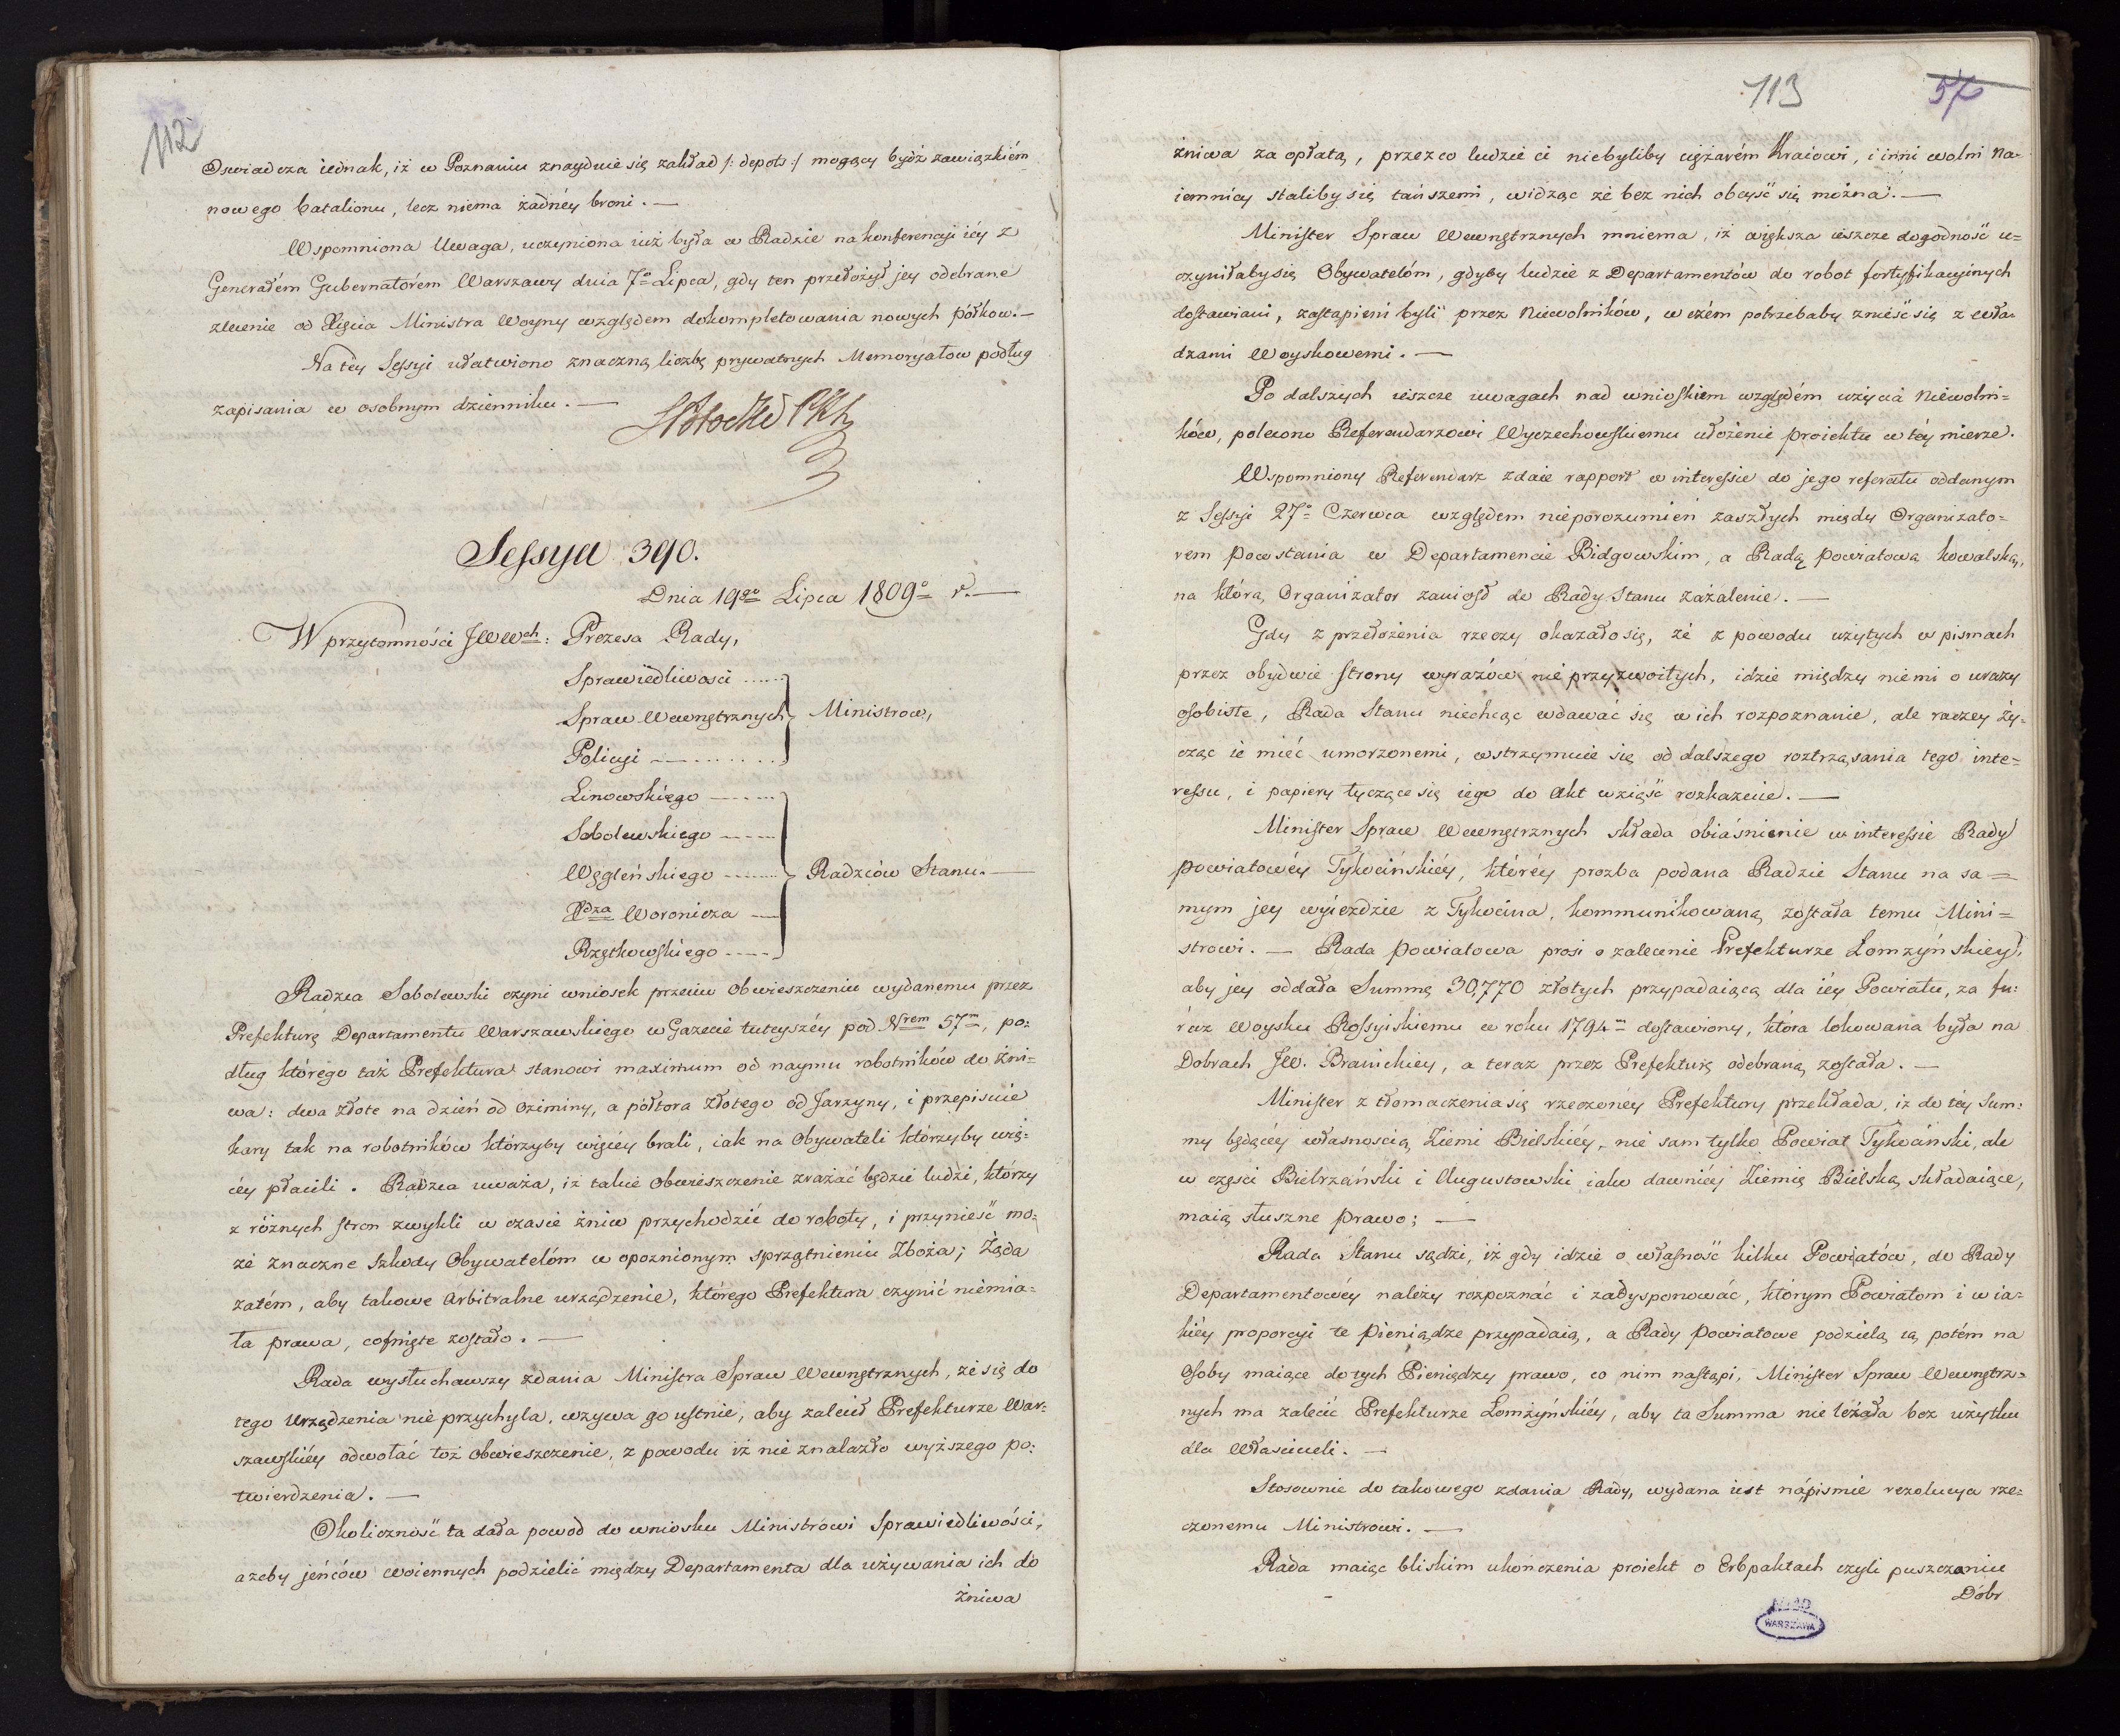 112
Oswiadcza iednak, iż w Poznaniu znayduie się zakład /: depots :/ mogący bydź zawiązkiém
nowego batalionu, lecz niema żadnéy broni. —
Wspomniona Uwaga, uczyniona iuż była w Radzie na konferencyi iéy z
Generałém Gubernatorém Warszawy dnia 7o Lipca, gdy ten przełożył jey odebrane
zlecenie od Xięcia Ministra Woyny względem dokompletowania nowych półkow. —
Na téy Sessyi ułatwiono znaczną liczbę prywatnych Memoryałow podług
zapisania w osobnym dzienniku. —
Sessya 390.
Dnia 19go Lipca 1809o r. —
W przytomności JWWch: Prezesa Rady,
Sprawiedliwości ......
Spraw Wewnętrznych } Ministrow,
Policyi — ........
Linowskiego — ....
Sobolewskiego — ....
Węgleńskiego ........ } Radzców Stanu. —
Xdza Woronicza —
Rzętkowskiego ----
Radzca Sobolewski czyni wniosek przeciw Obwieszczeniu wydanemu przez
Prefekturę Departamentu Warszawskiego w Gazecie tuteyszéy pod Nrem 57m, po=
dług którego taż Prefektura stanowi maximum od naymu robotników do żni=
wa: dwa złote na dzień od Oziminy, a półtora złotego od Jarzyny, i przepisuie
kary tak na robotników którzyby więcéy brali, iak na Obywateli którzyby wię=
céy płacili. Radzca uważa, iż takie Obwieszczenie zrażać będzie ludzi, którzy
z różnych stron zwykli w czasie żniw przychodzić do roboty, i przynieść mo=
że znaczne szkody Obywatelóm w opoznionym sprzątnieniu Zboża; Żąda
zatém, aby takowe Arbitralne urządzenie, którego Prefektura czynić niemia=
ła prawa, cofnięte zostało. —
Rada wysłuchawszy zdania Ministra Spraw Wewnętrznych, że się do
tego Urządzenia nie przychyla, wzywa go ustnie, aby zalecił Prefekturze War=
szawskiéy odwołać toż Obwieszczenie, z powodu iż nie znalazło wyższego po=
twierdzenia. —
Okoliczność ta dała powod do wniosku Ministrowi Sprawiedliwości,
ażeby jeńców woiennych podzielić między Departamenta dla używania ich do
żniwa
113
57
żniwa za opłatą, przezco ludzie ci niebyliby ciężarém Kraiowi, i inni wolni Na=
iemnicy staliby się tańszemi, widząc że bez nich obeyść się można. —
Minister Spraw Wewnętrznych mniema, iż większa ieszcze dogodność u=
czyniłaby się Obywatelóm, gdyby ludzie z Departamentów do robot fortyfikacyinych
dostawiani, zastąpieni byli przez Niewolników, w czém potrzebaby znieść się z wła=
dzami Woyskowemi. —
Po dalszych ieszcze uwagach nad wnioskiem względém użycia Niewolni=
ków, polecono Referendarzowi Wyczechowskiemu ułożenie proiektu w téy mierze.
Wspomniony Referendarz zdaie rapport w interessie do jego referatu oddanym
z Sessyi 27o Czerwca względem nieporozumień zaszłych między Organizato=
rem powstania w Departamencie Bidgowskim, a Radą powiatową kowalską,
na którą Organizator zaniosł do Rady Stanu zażalenie. —
Gdy z przełożenia rzeczy okazało się, że z powodu użytych w pismach
przez obydwie strony wyrazów nieprzyzwoitych, idzie między niemi o urazy
osobiste, Rada Stanu niechcąc wdawać się w ich rozpoznanie, ale raczey ży=
cząc ie mieć umorzonemi, wstrzymuie się od dalszego roztrząsania tego inte=
ressu, i papiery tyczące się iego do Akt wziąść rozkazuie. —
Minister Spraw Wewnętrznych składa obiaśnienie w interessie Rady
powiatowéy Tykocińskiéy, któréy prozba podana Radzie Stanu na sa=
mym jey wyieździe z Tykocina, kommunikowaną została temu Mini=
strowi. — Rada powiatowa prosi o zalecenie Prefekturze Łomżyńskiey,
aby jey oddała Summę 30,770 złotych przypadaiącą dla iéy Powiatu, za fu=
raż Woysku Rossyiskiemu w roku 1794m dostawiony, która lokowana była na
Dobrach JW. Branickiey, a teraz przez Prefekturę odebraną została. —
Minister z tłomaczenia się rzeczonéy Prefektury przekłada, iż do téy Sum=
my będącéy własnością Ziemi Bielskiéy, nie sam tylko Powiat Tykociński, ale
w części Biebrzański i Augustowski iako dawniéy Ziemię Bielską składaiące,
maią słuszne prawo; —
Rada Stanu sądzi, iż gdy idzie o własność kilku Powiatów, do Rady
Departamentowéy należy rozpoznać i zadysponować, którym Powiatom i w ia=
kiéy proporcyi te pieniądze przypadaią, a Rady powiatowe podzielą ią potém na
Osoby maiące do tych Pieniędzy prawo, co nim nastąpi, Minister Spraw Wewnętrz=
nych ma zalecić Prefekturze Łomżyńskiéy, aby ta Summa nie leżała bez użytku
dla Właścicieli. —
Stosownie do takowego zdania Rady, wydana iest nápismie rezolucya rze=
czonemu Ministrowi. —
Rada maiąc bliskim ukończenia proiekt o Erbpaktach czyli puszczaniu
Dóbr
WARSZAWA